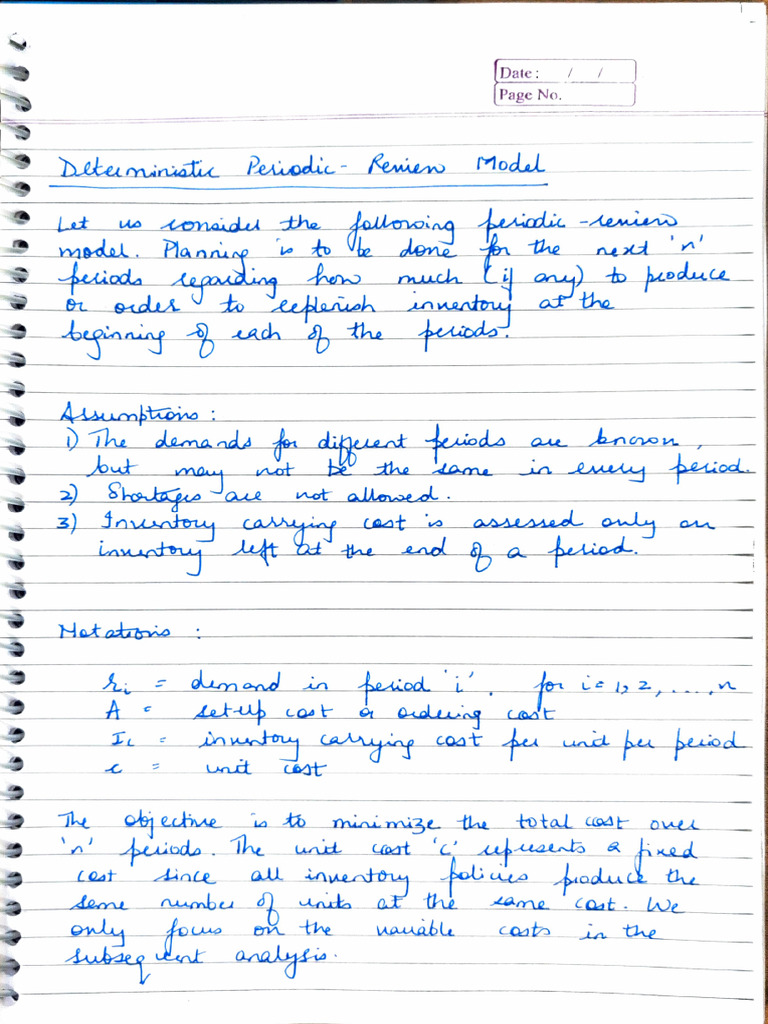 Date : / /
Page No.
Deterministic Periodic-Review Model
Let us consider the following periodic-review
model. Planning is to be done for the next 'n'
periods regarding how much (if any) to produce
or order to replenish inventory at the
beginning of each of the periods.
Assumptions :
1) The demands for different periods are known,
but may not be the same in every period.
2) Shortages are not allowed.
3) Inventory carrying cost is assessed only on
inventory left at the end of a period.
Notations :
ri = demand in period 'i'. for i = 1, 2, ....., n
A = set-up cost or ordering cost
Ic = inventory carrying cost per unit per period
c = unit cost
The objective is to minimize the total cost over
'n' periods. The unit cost 'c' represents a fixed
cost since all inventory policies produce the
same number of units at the same cost. We
only focus on the variable costs in the
subsequent analysis.